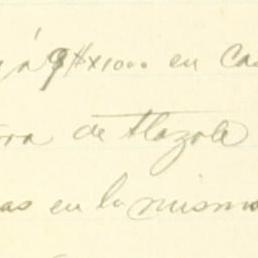 á 9 #x1000 en Ca
ra de tlazole
as en la misma